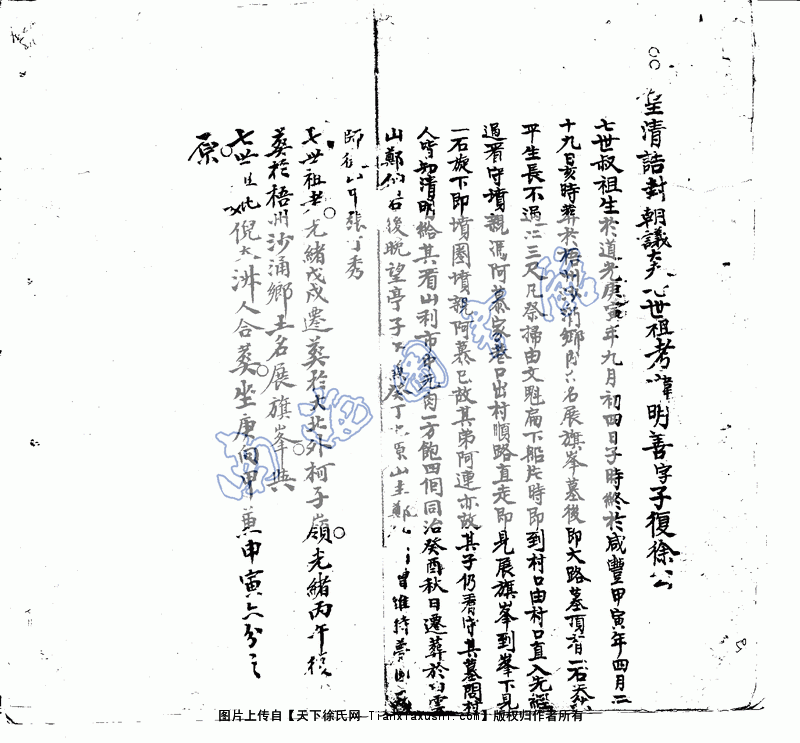 皇清誥封朝議大夫 世祖考諱明善字子復徐公
七世叔祖生於道光庚寅年九月初四日子時終於咸豐甲寅年四月二
十九日亥時葬於梧州沙涌鄉 名展旗峯墓後即大路墓頂有一石
平生長不過二三尺凡祭掃由文 廟下船片時即到村口由村口直入先
過看守墳親馮阿慕家巷口出村順路直走即見展旗峯到峯下見
一石旋下即墳圈墳親阿慕已故其弟阿連亦故其子仍看守其墓問村
人皆知清明給其看山利市 肉一方飽四個同治癸酉秋日遷葬於白雲
山鄭仙岩後晚望亭子下 癸丁 原山主鄭 曾維持
師 張丁秀
七世祖考光緒戊戌遷葬於大北外柯子嶺光緒丙午
葬於梧州沙涌鄉土名展旗峯與
七世 妣倪 人合葬坐庚向甲兼申寅六分之
原
南 圖 藏
图片上传自【天下徐氏网 Tianxiaxushi.com】版权归作者所有